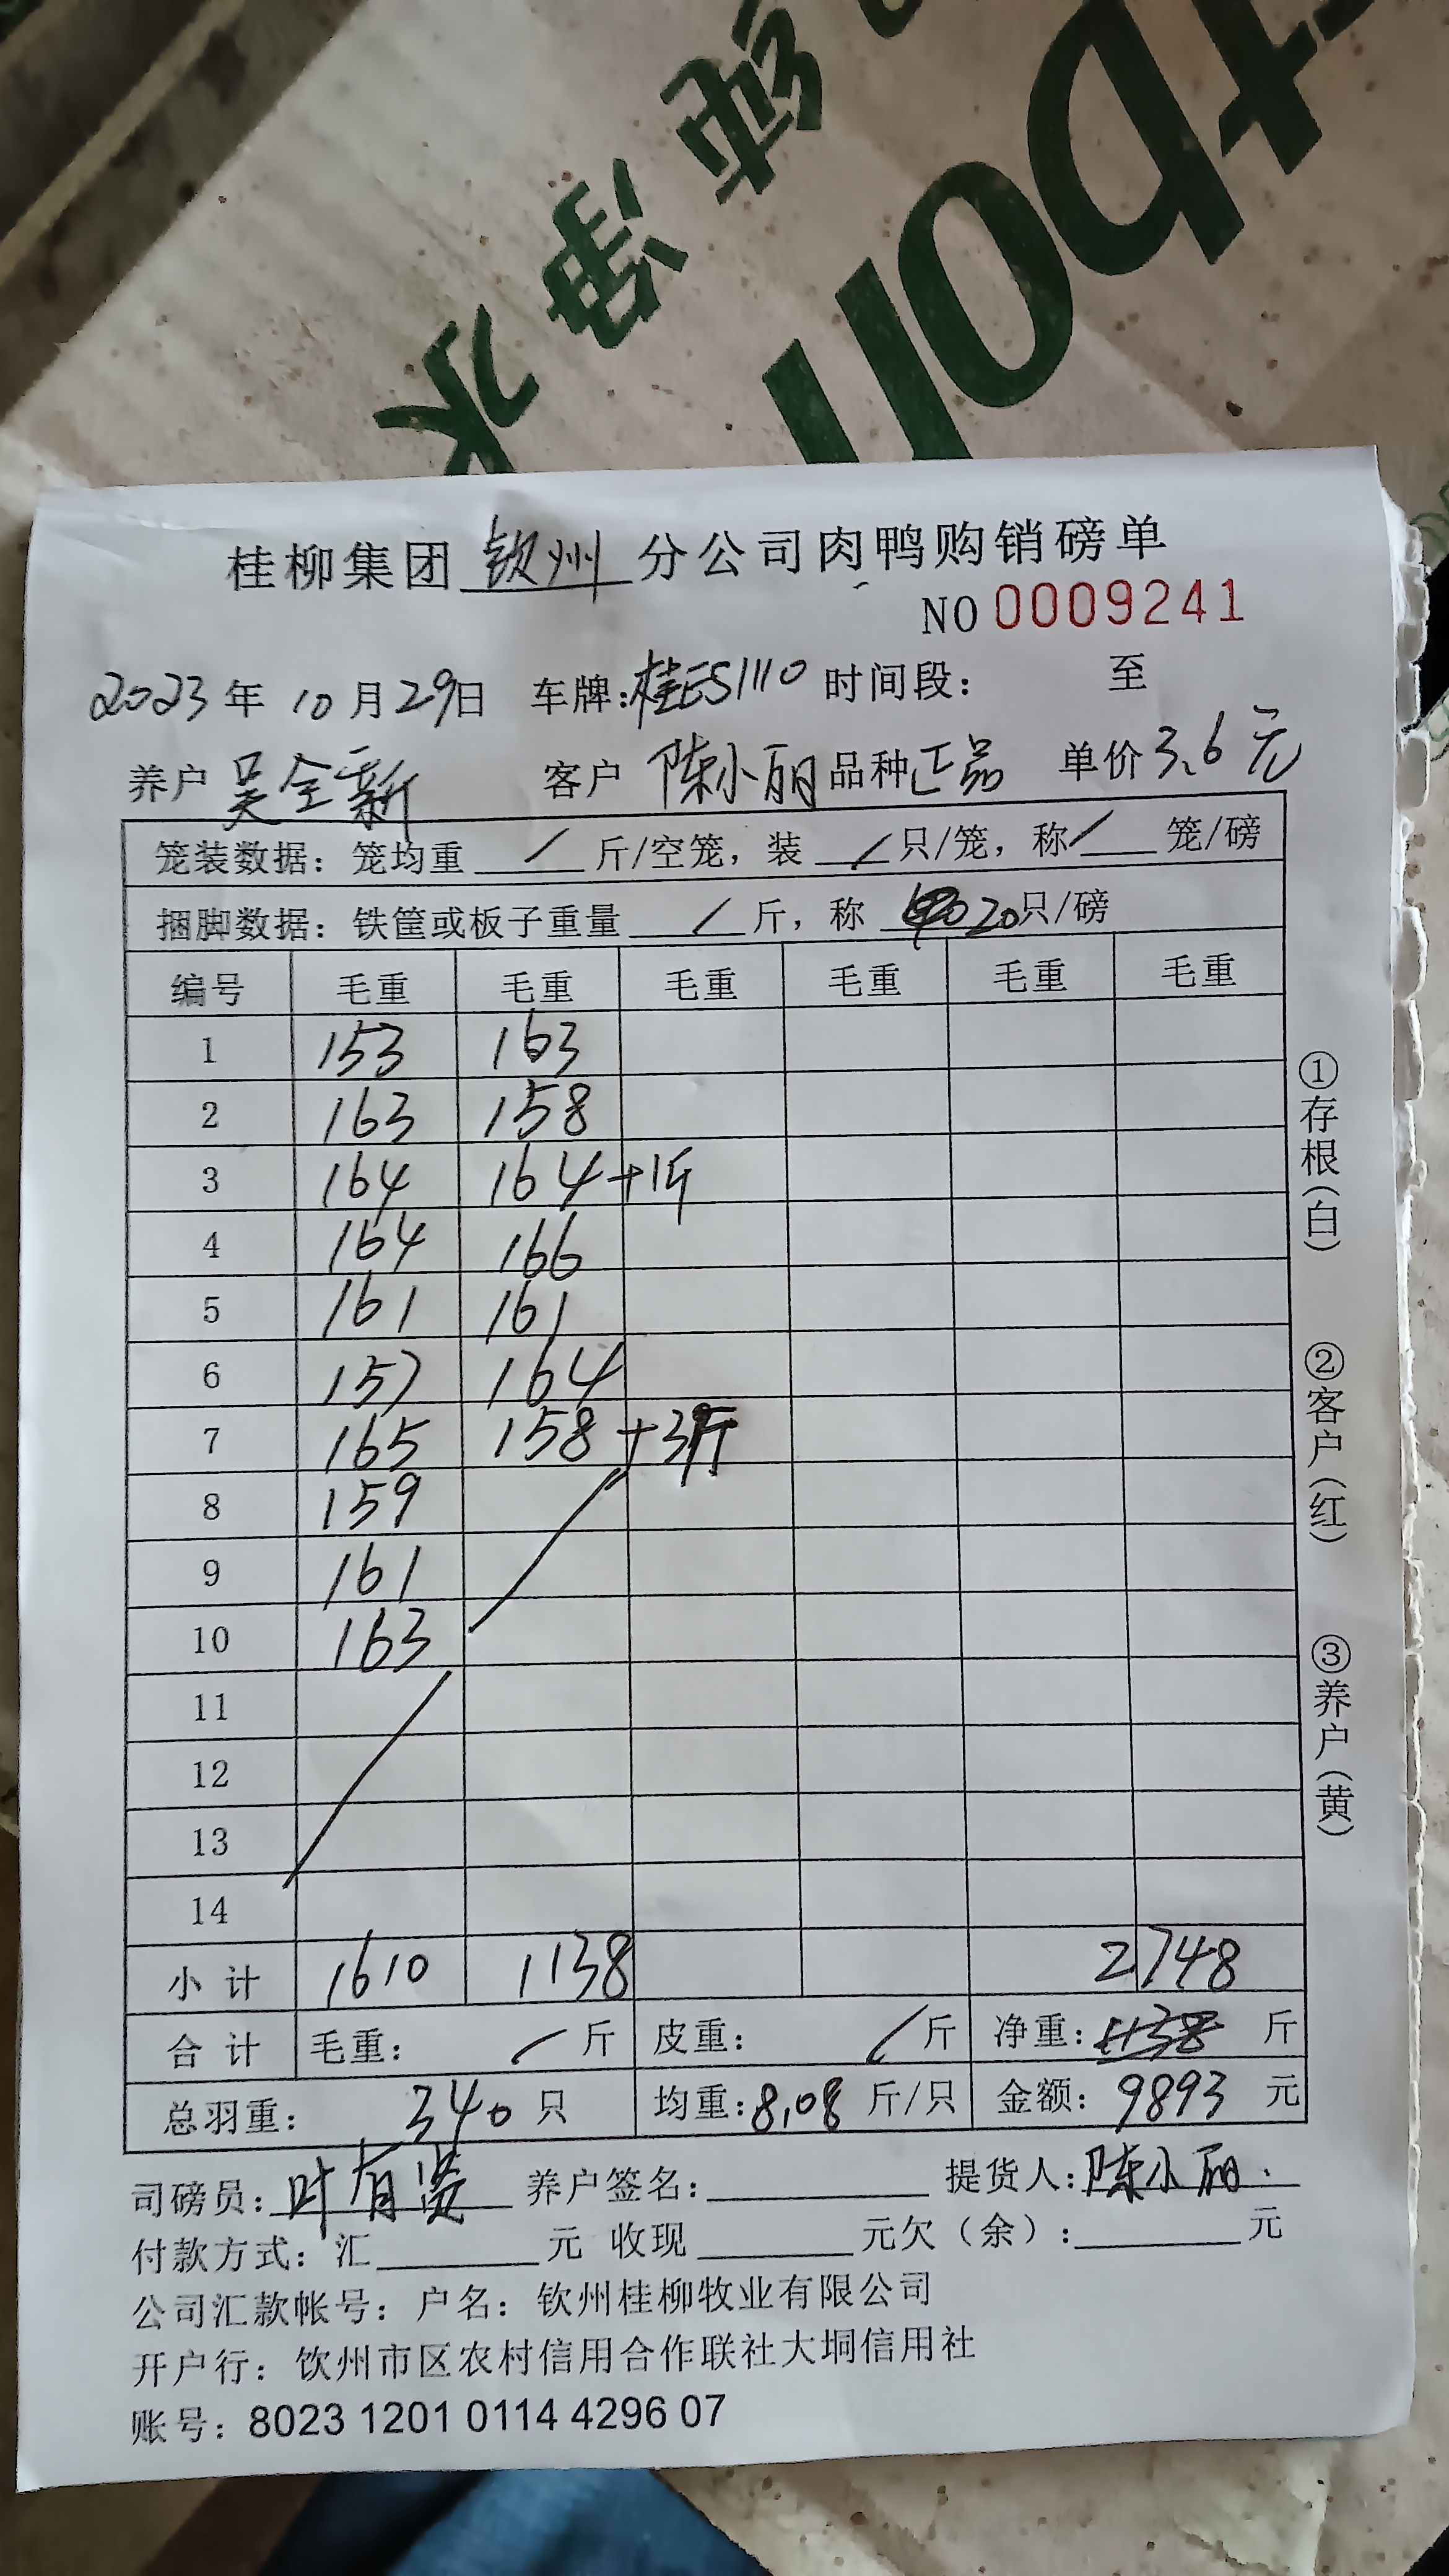 桂柳集团 钦州 分公司肉鸭购销磅单
NO 0009241
2023 年 10 月 29日 车牌:桂ES1110 时间段: 至
养户 吴全新 客户 陈小丽 品种 正品 单价 3.6 元
笼装数据: 笼均重 / 斤/空笼, 装 / 只/笼, 称 / 笼/磅
捆脚数据: 铁筐或板子重量 / 斤, 称 20 只/磅
编号 毛重 毛重 毛重 毛重 毛重 毛重
1 153 163
2 163 158
3 164 164 +1斤
4 164 166
5 161 161
6 157 164
7 165 158 +3斤
8 159
9 161
10 163
11
12
13
14
小 计 1610 1138 2748
合 计 毛重: / 斤 皮重: / 斤 净重: 1138 斤
总羽重: 340 只 均重: 8.08 斤/只 金额: 9893 元
司磅员: 叶有贤 养户签名: 提货人: 陈小丽.
付款方式: 汇 元 收现 元欠(余): 元
公司汇款帐号: 户名: 钦州桂柳牧业有限公司
开户行: 饮州市区农村信用合作联社大垌信用社
账号: 8023 1201 0114 4296 07
①存根(白)
②客户(红)
③养户(黄)